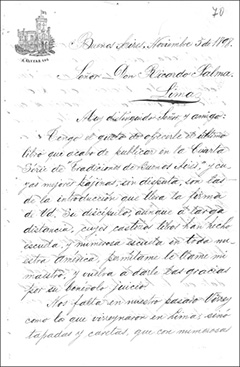 70
Buenos Aires, Noviembre 5 de 189
Señor Don Ricardo Palma.
Lima
Muy distinguido Señor y amigo:
Tengo el gusto de ofrecerle el último
libro que acabo de publicar en la Cuarta
Série de Tradiciones de Buenos Aires, y cu-
yas mejores pájinas, sin disputa, son las
de la introduccion que lleva la forma
de Ud. Su discípulo, aunque á larga
distancia, cuyos castizos libros han hecho
escuela, y numerosa escuela en toda nu-
estra América, permítame le llame mi
maestro, y vuelva á darle las gracias
por su benévolo juicio.
Nos falta en nuestro pasado Virrey
como la que virreynaron en Lima, sino
tapadas y caretas, que con numerosas